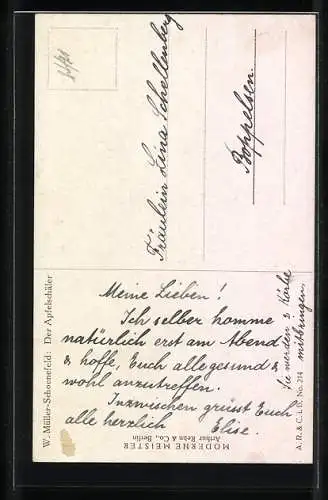 W. Müller-Schoenefeld: Der Apfelschäler
Meine Lieben!
Ich selber komme
natürlich erst am Abend
& hoffe, Euch alle gesund &
wohl anzutreffen.
Inzwischen grüsst Euch
alle herzlich Elise.
Sie werden 2 Körbe
mitbringen.
MODERNE MEISTER
Arthur Rehn & Co., Berlin
A. R. & C. i. B. No. 214
Fräulein Lina Schellenberg
Boppelsen.